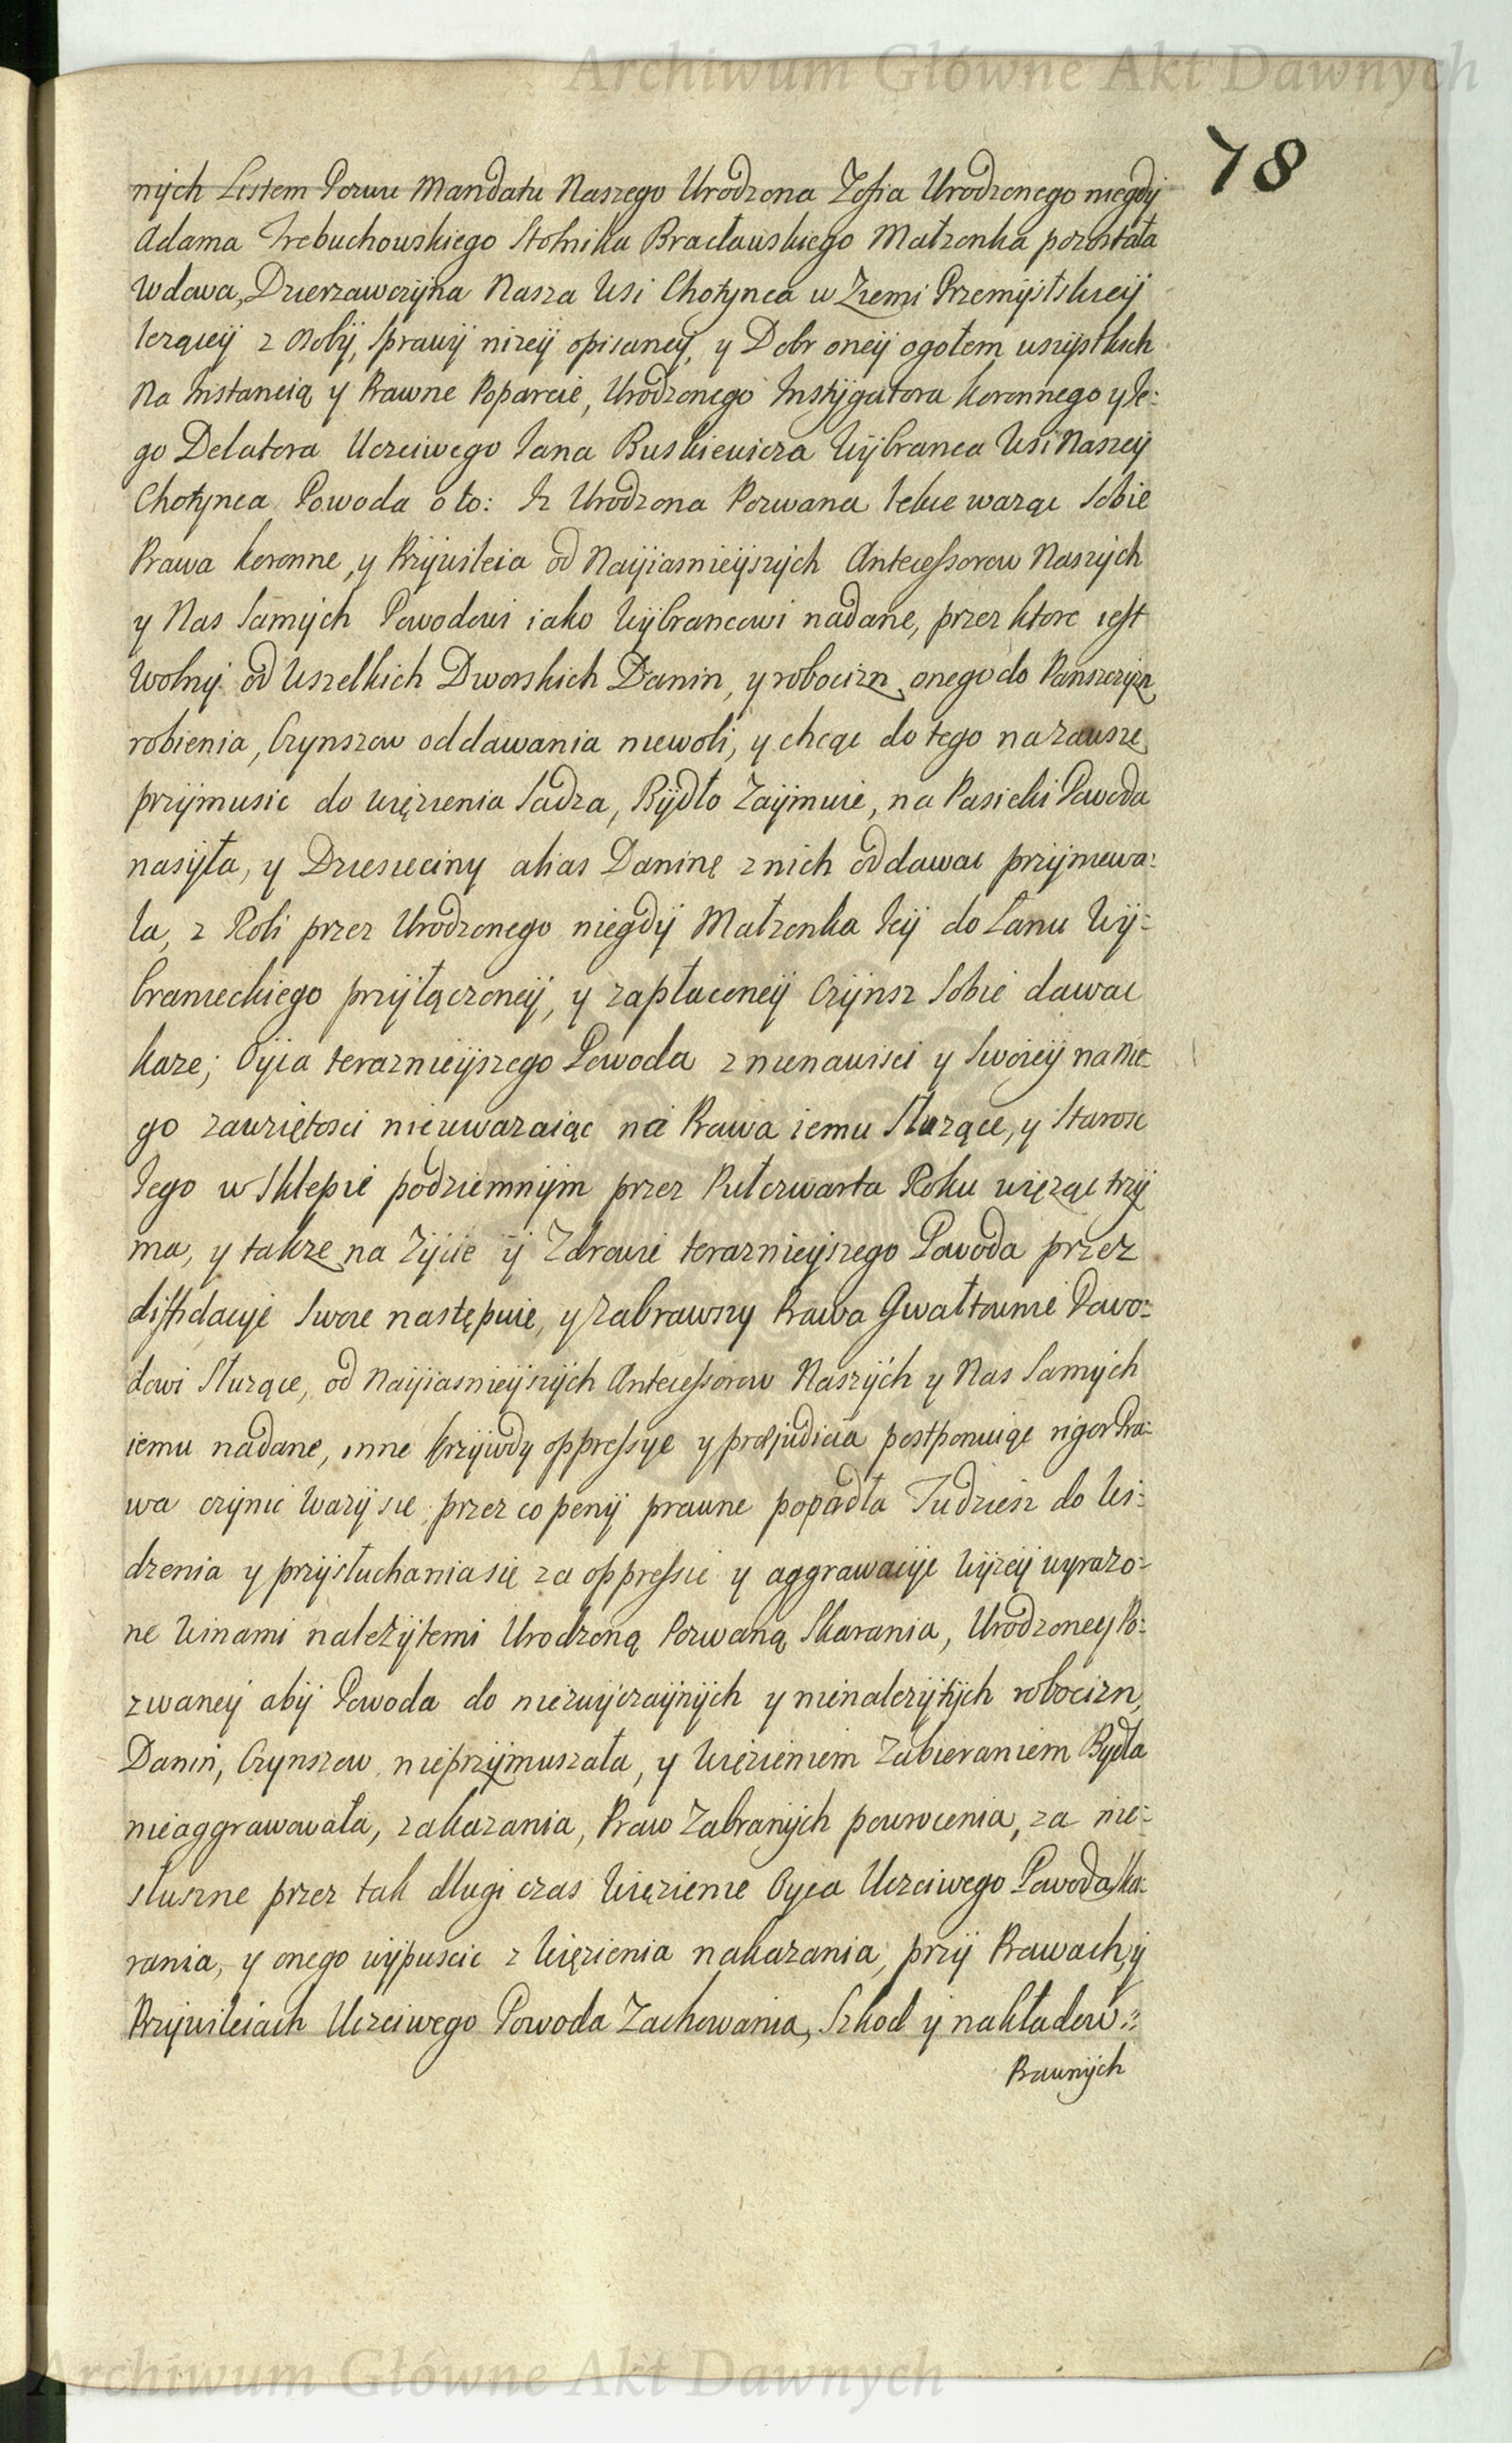 Archiwum Główne Akt Dawnych
78
nych Listem Pozwu Mandatu Naszego Urodzona Zofia Urodzonego niegdy
Adama Trebuchowskiego Stolnika Bracławskiego Małzonka pozostała
Wdowa, Dzierzawczyna Nasza Wsi Chotynca w Ziemi Przemyslskiey
lezącey z Osoby, Sprawy nizey opisaney, y Dobr oney ogołem wszystkich
Na Instancią y Prawne Poparcie, Urodzonego Instygatora Koronnego y Ie:
go Delatora Uczciwego Iana Buskiewicza Wybranca Wsi Naszey
Chotynca Powoda o to: Iz Urodzona Pozwana lekce waząc Sobie
Prawa koronne, y Przywileia od Nayiasnieyszych Antecessorow Naszych
y Nas Samych Powodowi iako Wybrancowi nadane, przez ktore iest
Wolny od Wszelkich Dworskich Danin, y robocizn onego do Panszczyzn
robienia, Czynszow oddawania niewoli, y chcąc do tego na zawsze
przymusic do więzienia Sadza, Bydło Zaymuie, na Pasieki Powoda
nasyła, y Dziesieciny alias Daninę z nich oddawac przyniewa:
la, z Roli przez Urodzonego niegdy Małzonka Iey do Lanu Wy:
branieckiego przyłączoney, y zapłaconey Czynsz Sobie dawac
kaze; Oyca teraznieyszego Powoda z nienawisci y Swoiey na Nie:
go zawziętosci nieuwazaiąc na Prawa iemu Sluzące, y Starosc
Iego w Sklepie podziemnym przez Pułczwarta Roku więząc trzy
ma, y takze na Zycie y Zdrowie teraznieyszego Powoda przez
diffidacye Swoie następuie, y zabrawszy Prawa Gwałtownie Powo:
dowi Sluzące, od Nayiasnieyszych Antecessorow Naszych y Nas Samych
iemu nadane, inne krzywdy oppressye y praejudicia postponuiąc rigor Pra:
wa czynic wazy sie, przez co peny prawne popadła Tudziesz do Wi:
dzenia y przysłuchania się za oppressie y aggrawacye Wyzey wyrazo:
ne Winami nalezytemi Urodzoną Pozwaną Skarania, Urodzoney Po:
zwaney aby Powoda do niezwyczaynych y nienalezytych robocizn,
Danin, Czynszow nieprzymuszała, y Więzieniem Zabieraniem Bydła
nieaggrawowała, zakazania, Praw Zabranych powrocenia, za nie:
sluszne przez tak dlugi czas Więzienie Oyca Uczciwego Powoda Ska:
rania, y onego wypuscic z Więzienia nakazania, przy Prawach, y
Przywileiach Uczciwego Powoda Zachowania, Szkod y nakładow
Prawnych
Archiwum Główne Akt Dawnych